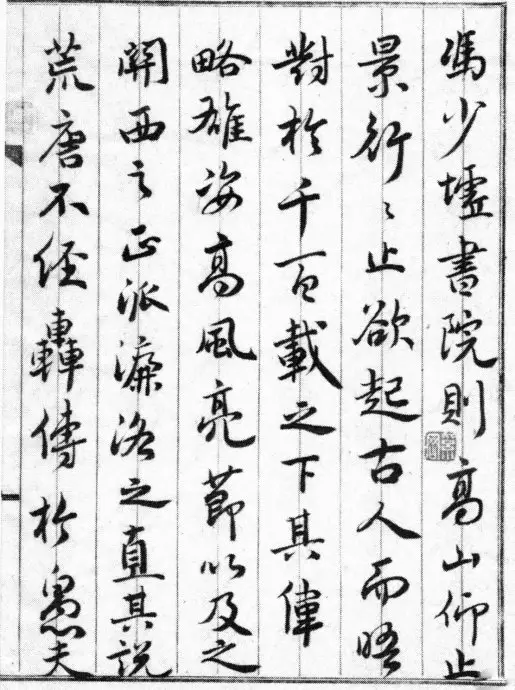 馮少墟書院則高山仰止
景行〻止欲起古人而晤
對於千百載之下其偉
略雄姿高風亮節以及
關西之正派濂洛之直其說
荒唐不經轟傳於愚夫